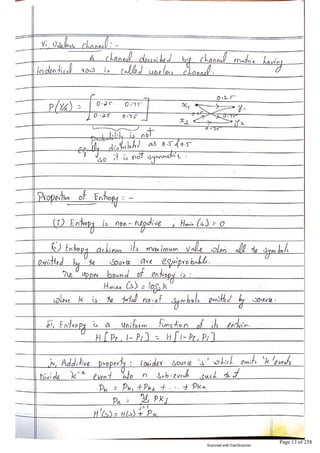 vi, Useless channel :-
A channel described by channel matrix having
indentical row is called useless channel.
P(Y/X) = [ 0.25 0.75
0.25 0.75 ]
0.25
x1 y1
0.25 0.75
x2 y2
0.75
Probability is not
equally distributed as 0.5 & 0.5
so it is not symmetric.
Properties of Entropy : -
(i) Entropy is non-negative , Hmin (s) = 0
ii) Entropy achieves its maximum value when all the symbols
emitted by the source are equiprobable.
The upper bound of entropy is :
Hmax (s) = log2 k
where k is the total no. of symbols emitted by source.
iii, Entropy is a uniform function of its
H [P1, 1-P1] = H [1-P1, P1]
iv, Additive property : Consider source 's' which emits 'k' events
Divide kth event into n sub-events such that
Pk = Pk1 + Pk2 + .. + Pkn
Pk = Σ Pkj
H'(s) = H(s) + Pk
Scanned with CamScanner
Page 13 of 258